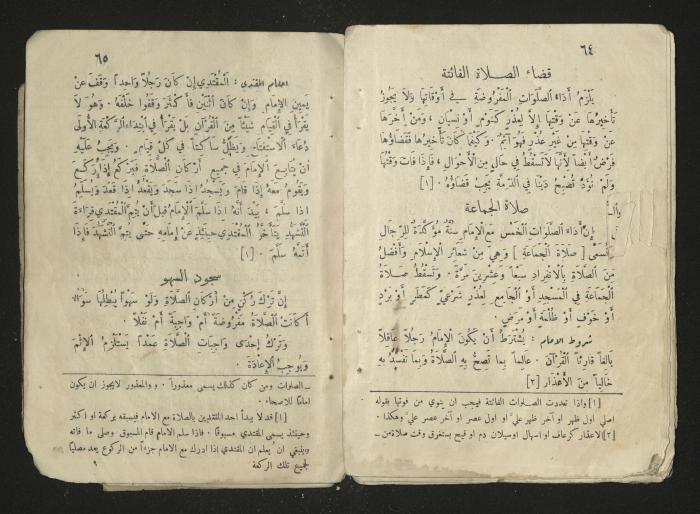 ٦٤
قضاء الصلاة الفائتة
يَلْزَمُ أَدَاءُ الصَّلَوَاتِ الْمَفْرُوضَةِ فِي أَوْقَاتِهَا وَلَا يَجُوزُ
تَأْخِيرُهَا عَنْ وَقْتِهَا إِلَّا لِعُذْرٍ كَنَوْمٍ أَوْ نِسْيَانٍ ، وَمَنْ أَخَّرَهَا
عَنْ وَقْتِهَا مِنْ غَيْرِ عُذْرٍ فَهُوَ آثِمٌ . وَكَيْفَمَا كَانَ تَأْخِيرُهَا فَقَضَاؤُهَا
فَرْضٌ أَيْضاً لِأَنَّهَا لَا تَسْقُطُ فِي حَالٍ مِنَ الْأَحْوَالِ ، فَإِذَا فَاتَ وَقْتُهَا
وَلَمْ تُؤَدَّ تُصْبِحُ دَيْناً فِي الذِّمَّةِ يَجِبُ قَضَاؤُهُ . [١]
صلاة الجماعة
إِنَّ أَدَاءَ الصَّلَوَاتِ الْخَمْسِ مَعَ الْإِمَامِ سُنَّةٌ مُؤَكَّدَةٌ لِلرِّجَالِ
تُسَمَّى [ صَلَاةَ الْجَمَاعَةِ ] وَهِيَ مِنْ شَعَائِرِ الْإِسْلَامِ وَأَفْضَلُ
مِنَ الصَّلَاةِ بِالْانْفِرَادِ سَبْعاً وَعِشْرِينَ مَرَّةً . وَتَسْقُطُ صَلَاةُ
الْجَمَاعَةِ فِي الْمَسْجِدِ أَوِ الْجَامِعِ لِعُذْرٍ شَرْعِيٍّ كَمَطَرٍ أَوْ بَرْدٍ
أَوْ خَوْفٍ أَوْ ظُلْمَةٍ أَوْ مَرَضٍ .
شروط الامام : يُشْتَرَطُ أَنْ يَكُونَ الْإِمَامُ رَجُلاً عَاقِلاً
بَالِغاً قَارِئاً الْقُرْآنَ . عَالِماً بِمَا تَصِحُّ بِهِ الصَّلَاةُ وَبِمَا تَفْسُدُ بِهِ
خَالِياً مِنَ الْأَعْذَارِ [٢]
[١] واذا تعددت الصلوات الفائتة فيجب ان ينوي من فوتها بقوله
اصلي اول ظهر او آخر ظهر عليَّ او اول عصر او آخر عصر عليَّ وهكذا .
[٢] الاعذار كرعاف او اسهال او سيلان دم او قيح يستغرق وقت صلاة من ـ
٦٥
احكام المقتدي : الْمُقْتَدِي إِنْ كَانَ رَجُلاً وَاحِداً وَقَفَ عَنْ
يَمِينِ الْإِمَامِ وَإِنْ كَانَ اثْنَيْنِ فَأَكْثَرَ وَقَفُوا خَلْفَهُ . وَهُوَ لَا
يَقْرَأُ فِي الْقِيَامِ شَيْئاً مِنَ الْقُرْآنِ بَلْ يَقْرَأُ فِي ابْتِدَاءِ الرَّكْعَةِ الْأُولَى
دُعَاءَ الِاسْتِفْتَاحِ وَيَظَلُّ سَاكِتاً فِي كُلِّ قِيَامٍ . وَيَجِبُ عَلَيْهِ
أَنْ يُتَابِعَ الْإِمَامَ فِي جَمِيعِ أَرْكَانِ الصَّلَاةِ فَيَرْكَعُ إِذَا رَكَعَ
وَيَقُومُ مَعَهُ إِذَا قَامَ وَيَسْجُدُ إِذَا سَجَدَ وَيَقْعُدُ إِذَا قَعَدَ وَيُسَلِّمُ
إِذَا سَلَّمَ ، بَيْدَ أَنَّهُ إِذَا سَلَّمَ الْإِمَامُ قَبْلَ أَنْ يُتِمَّ الْمُقْتَدِي قِرَاءَةَ
التَّشَهُّدِ يَتَأَخَّرُ الْمُقْتَدِي حِينَئِذٍ عَنْ إِمَامِهِ حَتَّى يُتِمَّ التَّشَهُّدَ فَإِذَا
أَتَمَّهُ سَلَّمَ . [١]
سجود السهو
إِنَّ تَرْكَ رُكْنٍ مِنْ أَرْكَانِ الصَّلَاةِ وَلَوْ سَهْواً يُبْطِلُهَا سَوَاءٌ
أَكَانَتِ الصَّلَاةُ مَفْرُوضَةً أَمْ وَاجِبَةً أَمْ نَفْلاً .
وَتَرْكَ إِحْدَى وَاجِبَاتِ الصَّلَاةِ عَمْداً يَسْتَلْزِمُ الْإِثْمَ
وَيُوجِبُ الْإِعَادَةَ .
ـ الصلوات ومن كان كذلك يسمى معذوراً . والمعذور لا يجوز ان يكون
اماماً للاصحاء .
[١] قد لا يبدأ احد المقتدين بالصلاة مع الامام فيسبقه بركعة او اكثر
وحينئذ يسمى المقتدي مسبوقاً . فاذا سلم الامام قام المسبوق وصلى ما فاته
وينبغي ان يُعلم ان المقتدي اذا ادرك مع الامام جزءاً من الركوع يعد مصلياً
لجميع تلك الركعة